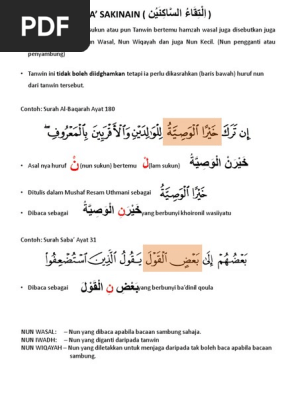 PDF
A' SAKINAIN ( الْتِقَاءُ السَّاكِنَيْنِ )
sukun atau pun Tanwin bertemu hamzah wasal juga disebutkan juga
Wasal, Nun Wiqayah dan juga Nun Kecil. (Nun pengganti atau
penyambung)
• Tanwin ini tidak boleh diidghamkan tetapi ia perlu dikasrahkan (baris bawah) huruf nun
dari tanwin tersebut.
Contoh: Surah Al-Baqarah Ayat 180
إِن تَرَكَ خَيْرًا الْوَصِيَّةُ لِلْوَالِدَيْنِ وَالْأَقْرَبِينَ بِالْمَعْرُوفِ
• Asal nya huruf نْ (nun sukun) bertemu لْ (lam sukun) خَيْرَنْ الْوَصِيَّةُ
• Ditulis dalam Mushaf Resam Uthmani sebagai خَيْرًا الْوَصِيَّةُ
• Dibaca sebagai خَيْرَنِ الْوَصِيَّةُ yang berbunyi khoirenil wasiiyatu
Contoh: Surah Saba' Ayat 31
بَعْضُهُمْ إِلَىٰ بَعْضٍ الْقَوْلَ يَقُولُ الَّذِينَ اسْتُضْعِفُوا
• Dibaca sebagai بَعْضِنِ الْقَوْلَ yang berbunyi ba'dinil qoula
NUN WASAL: – Nun yang dibaca apabila bacaan sambung sahaja.
NUN IWADH: – Nun yang diganti daripada tanwin
NUN WIQAYAH – Nun yang diletakkan untuk menjaga daripada tak boleh baca apabila bacaan
sambung.